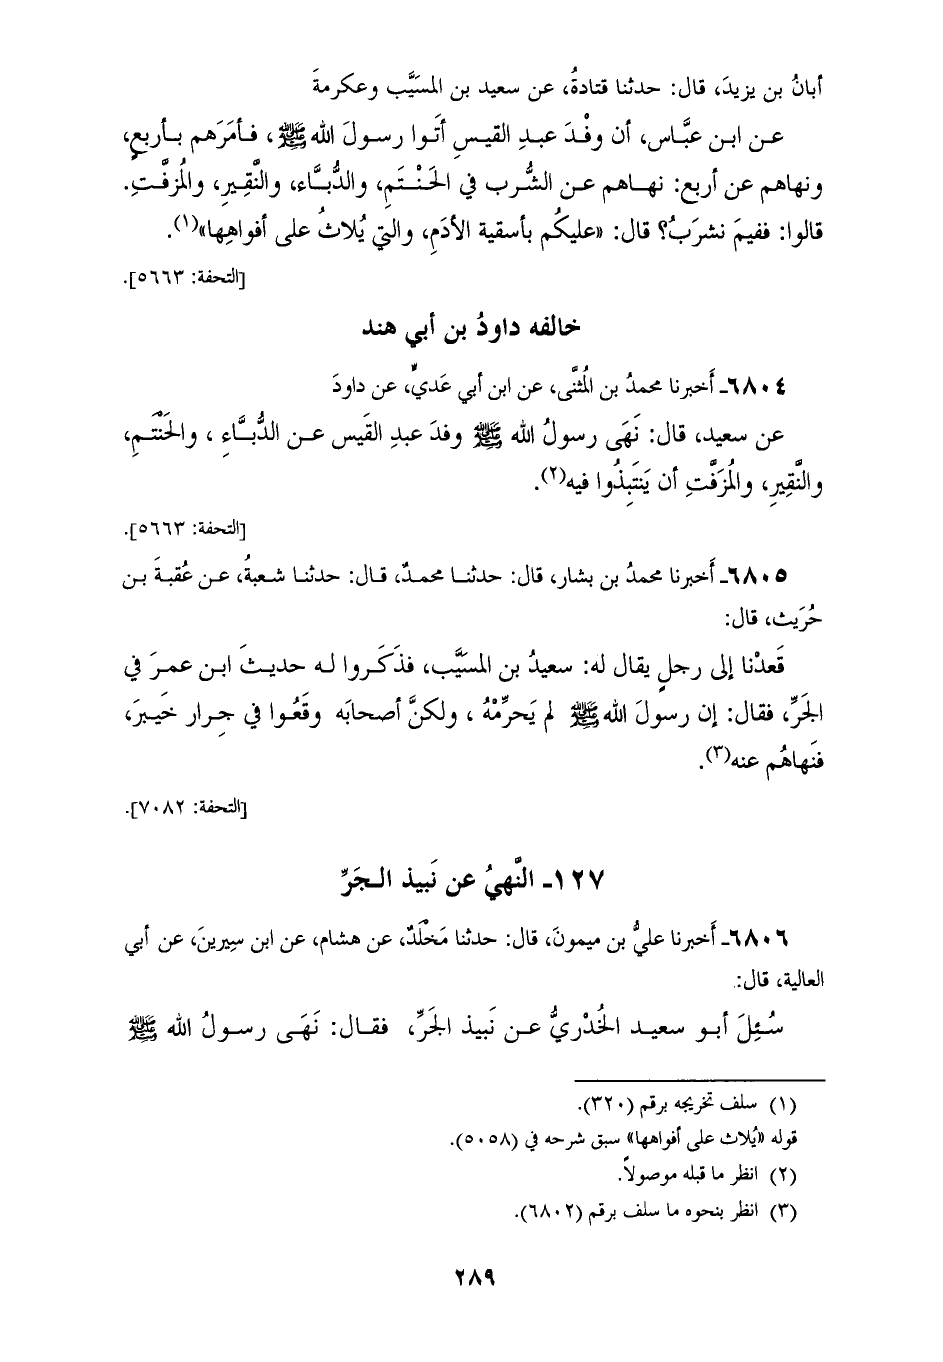 أبانُ بن يزيدَ، قال: حدثنا قتادةُ، عن سعيد بن المسَيَّب وعكرمةَ
عـن ابـن عبَّاس، أن وفْـدَ عبـدِ القيـسِ أتَـوا رسـولَ الله ﷺ، فـأمَرَهم بـأربعٍ،
ونهاهم عن أربع: نهـاهم عـن الشُّرب في الحَنْـتَمِ، والدُّبَّـاء، والنَّقِـيرِ، والمُزفَّـتِ.
قالوا: ففيمَ نشرَبُ؟ قال: «عليكُم بأسقية الأدَمِ، والتي يُلاثُ على أفواهِها»(١).
[التحفة: ٥٦٦٣].
خالفه داودُ بن أبي هند
٦٨٠٤ـ أَخبرنا محمدُ بن المُثنَّى، عن ابن أبي عَديٍّ، عن داودَ
عن سعيد، قال: نَهَى رسولُ الله ﷺ وفدَ عبدِ القَيس عـن الدُّبـَّـاءِ، والحَنْتَـمِ،
والنَّقِيرِ، والمُزَفَّتِ أن يَنتَبِذُوا فيه(٢).
[التحفة: ٥٦٦٣].
٦٨٠٥ـ أَخبرنا محمدُ بن بشار، قال: حدثنـا محمـدٌ، قـال: حدثنـا شـعبةُ، عـن عُقبـةَ بـن
حُرَيث، قال:
قَعدْنا إلى رجلٍ يقال له: سعيدُ بن المسَيَّب، فذَكَـروا لـه حديـثَ ابـن عمـرَ في
الجَرِّ، فقال: إن رسولَ الله ﷺ لم يَحرِّمْهُ، ولكنَّ أصحابَه وقَعُـوا في جِـرار خَيـبرَ،
فنَهاهُم عنه(٣).
[التحفة: ٧٠٨٢].
١٢٧ـ النَّهيُ عن نَبيذ الـجَرِّ
٦٨٠٦ـ أَخبرنا عليُّ بن ميمونَ، قال: حدثنا مَخْلَدٌ، عن هشام، عن ابن سِيرينَ، عن أبي
العالية، قال:
سُـئِلَ أبـو سـعيـد الخُـدْريُّ عـن نَبيـذ الجَـرِّ، فقـال: نَهَـى رسـولُ الله ﷺ
(١) سلف تخريجه برقم (٣٢٠).
قوله «يُلاث على أفواهها» سبق شرحه في (٥٠٥٨).
(٢) انظر ما قبله موصولاً.
(٣) انظر بنحوه ما سلف برقم (٦٨٠٢).
٢٨٩